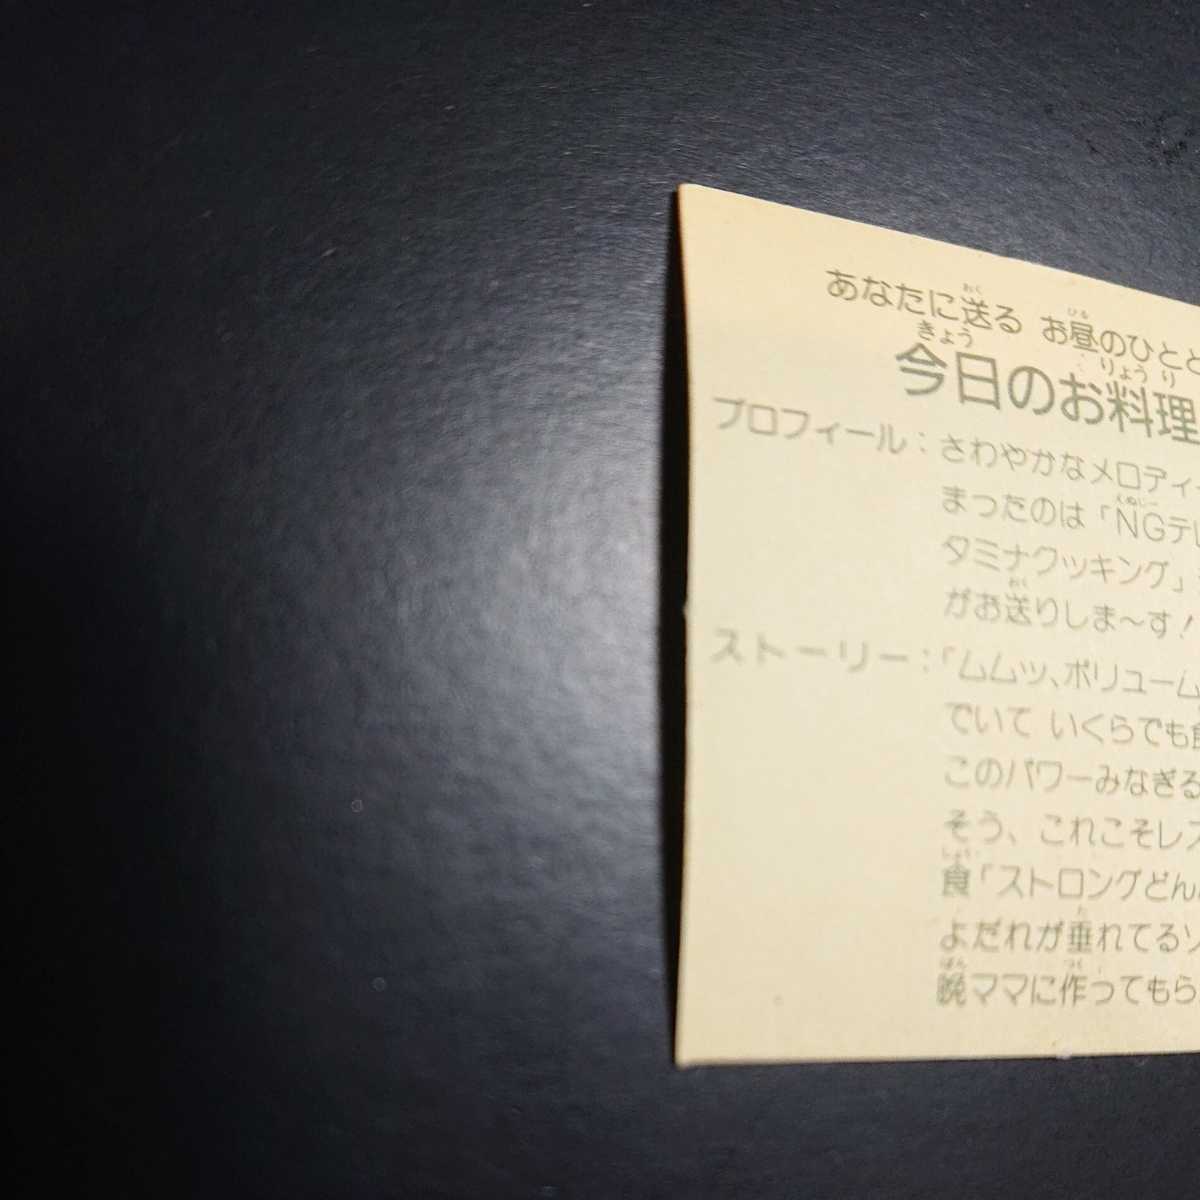 あなたに送る お昼のひとと
今日のお料理
プロフィール：さわやかなメロディー
まったのは「NGテレ
タミナクッキング」
がお送りしま〜す！
ストーリー：「ムムッ、ボリューム
でいて いくらでも食
このパワーみなぎる
そう、これこそレス
食「ストロングどん
よだれが垂れてるソ
晩ママに作ってもら